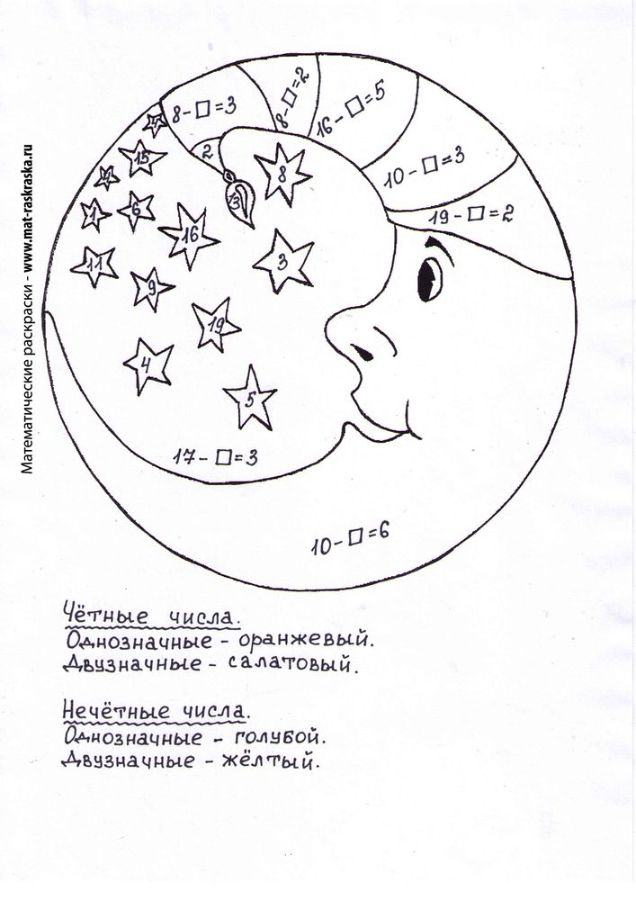 8-□=3
8-□=2
16-□=5
10-□=3
19-□=2
2
15
8
1
6
16
11
9
3
19
4
5
17-□=3
10-□=6
Математические раскраски - www.mat-raskraska.ru
Чётные числа.
Однозначные - оранжевый.
Двузначные - салатовый.
Нечётные числа.
Однозначные - голубой.
Двузначные - жёлтый.